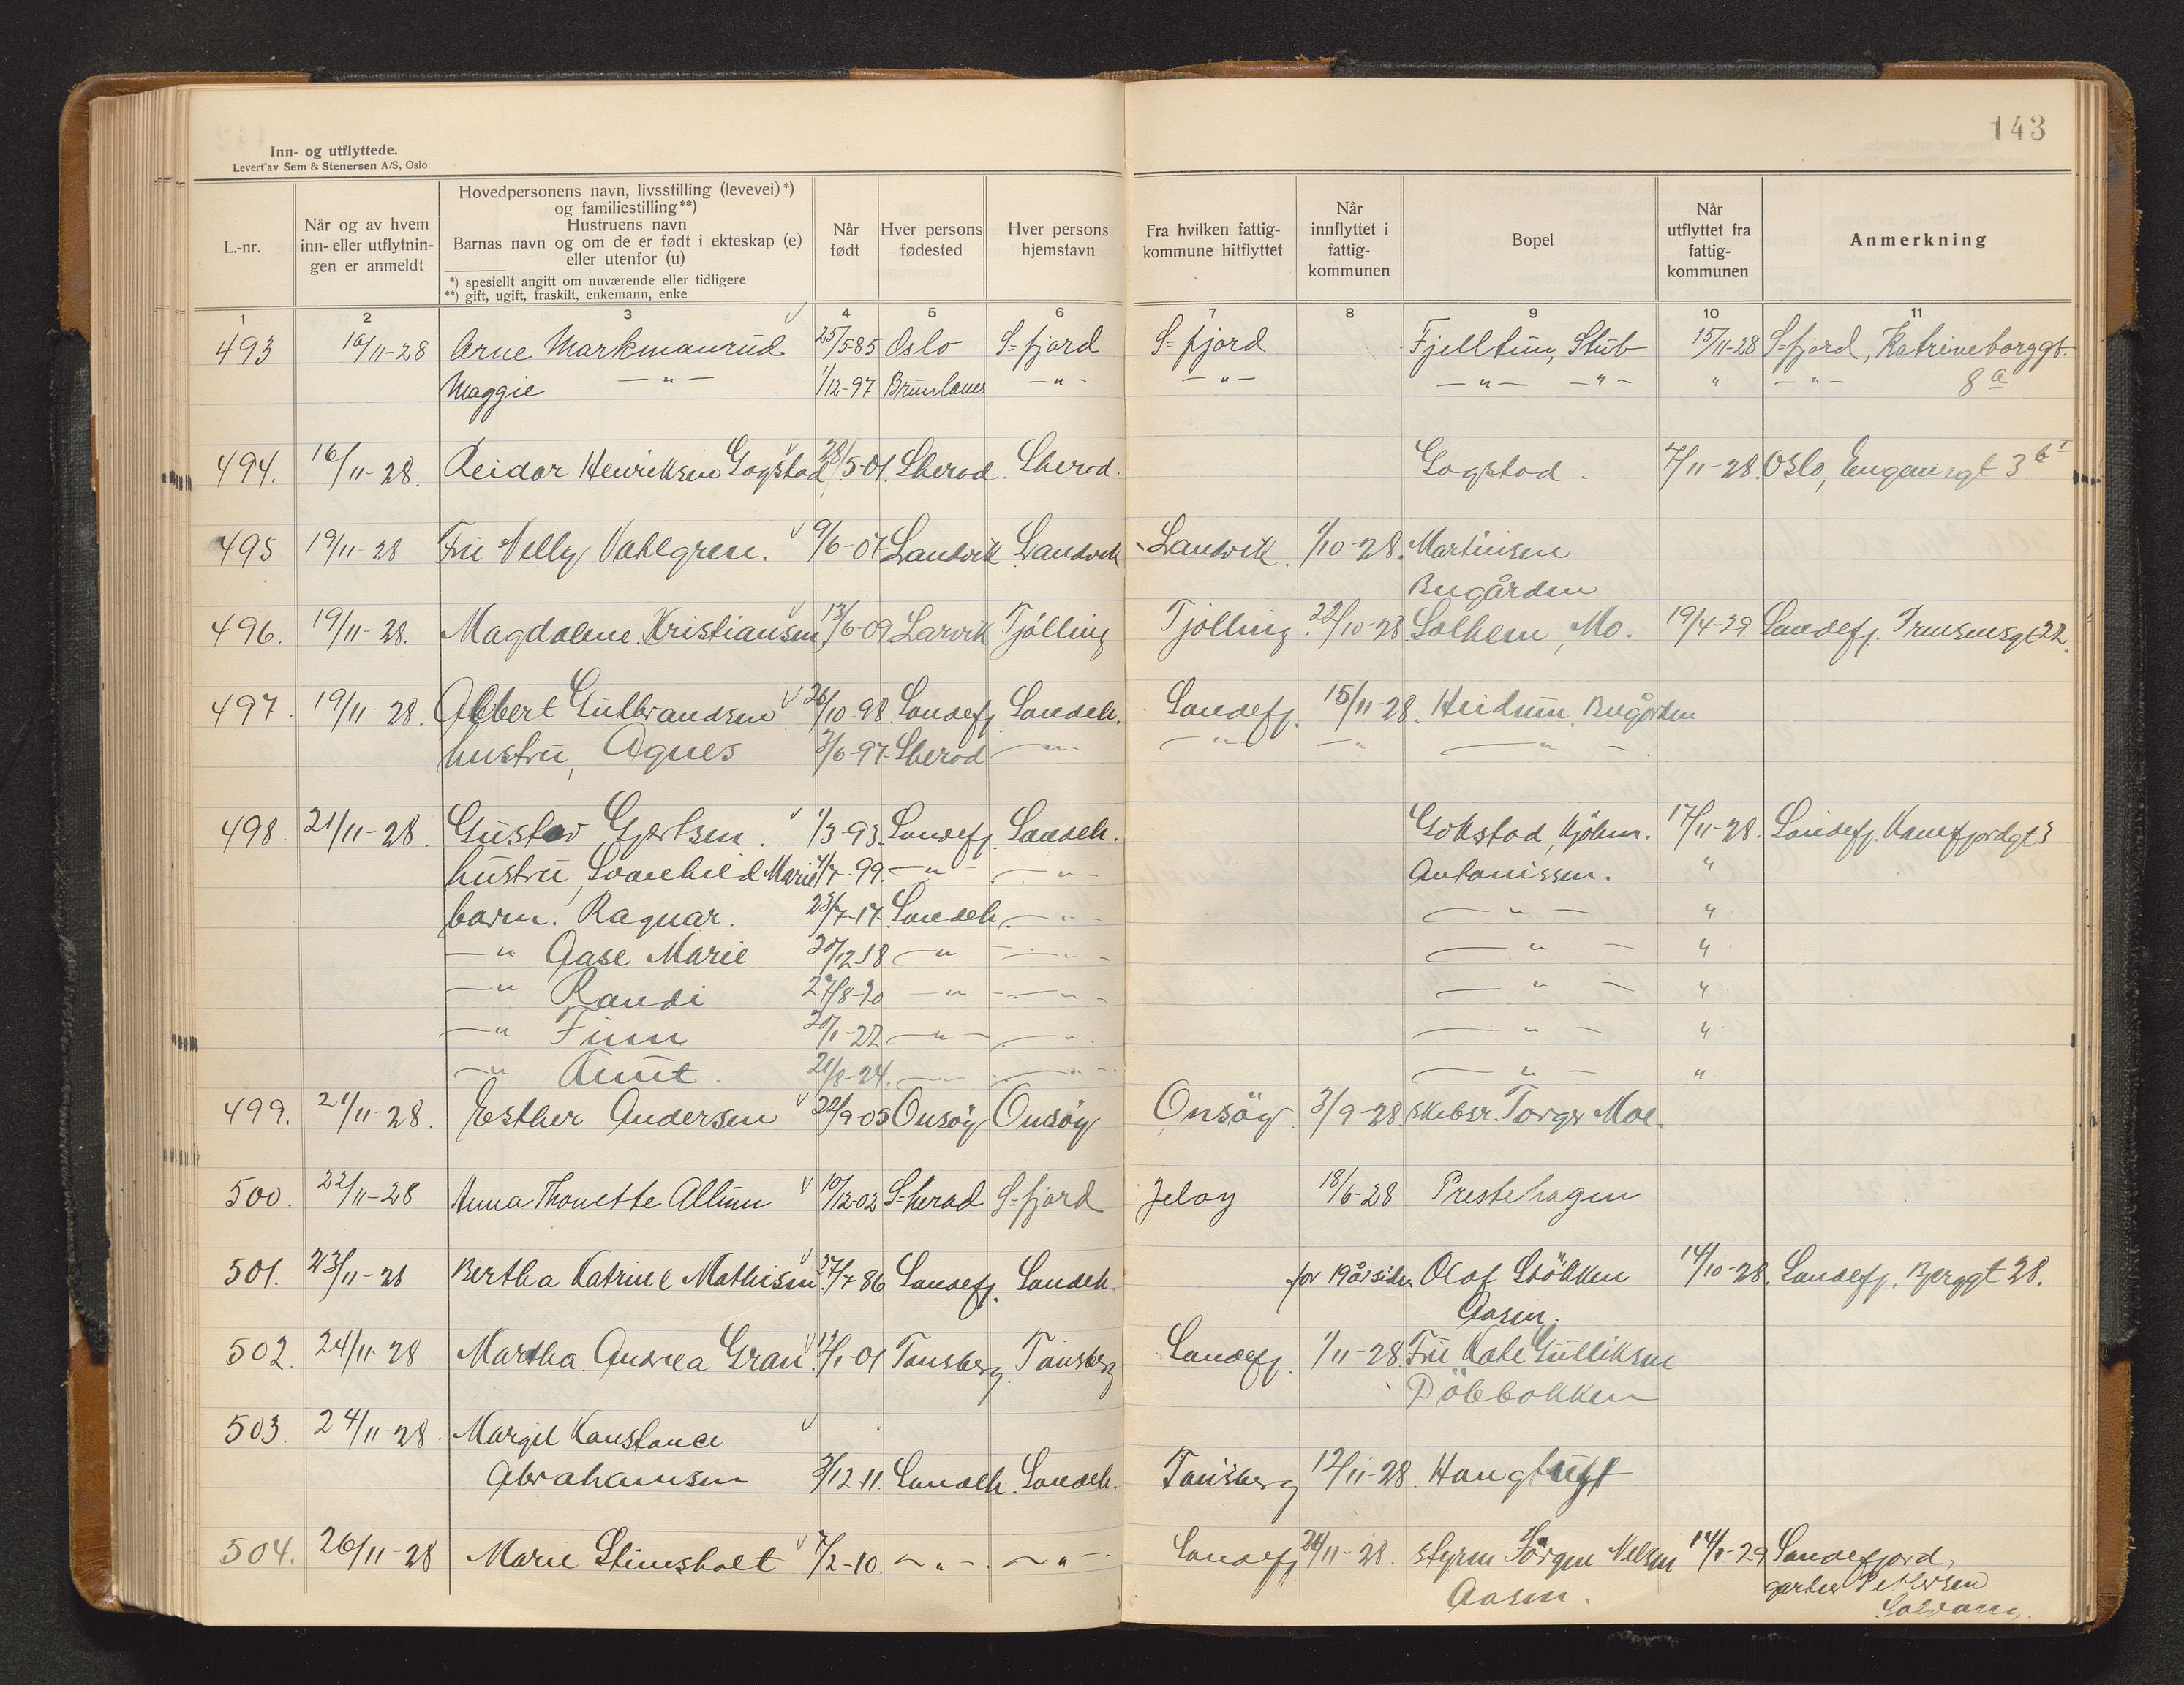 143
Inn- og utflyttede.
Levert av Sem & Stenersen A/S, Oslo
L.-nr.
Når og av hvem inn- eller utflytnin-gen er anmeldt
Hovedpersonens navn, livsstilling (levevei)*)
og familiestilling**)
Hustruens navn
Barnas navn og om de er født i ekteskap (e)
eller utenfor (u)
*) spesiellt angitt om nuværende eller tidligere
**) gift, ugift, fraskilt, enkemann, enke
Når født
Hver persons fødested
Hver persons hjemstavn
Fra hvilken fattig-kommune hitflyttet
Når innflyttet i fattig-kommunen
Bopel
Når utflyttet fra fattig-kommunen
Anmerkning
1 2 3 4 5 6 7 8 9 10 11
493 16/11-28 Arne Markmanrud 25/5-85 Oslo S=fjord S=fjord Fjelltun, Stub 15/11-28 S=fjord, Katrineborggt.
Maggie —"— 1/12-97 Brunlanes —"— —"— —"— —"— " —"— 8a
494. 16/11-28. Reidar Henriksen Gogstad 28/5-01. Sherod. Sherod. Gogstad. 7/11-28. Oslo, Eugeniesgt 3
495 19/11-28 Fru Nelly Vahlgren. 9/6-07 Landvik Landvik Landvik 1/10-28. Martinsen
Bugården
496. 19/11-28. Magdalene Kristiansen 13/6-09 Larvik Tjölling Tjölling 22/10-28 Solhem, Mo. 19/4-29. Sandefj. 22.
497. 19/11-28. Albert Gulbrandsen 26/10-98 Sandefj. Sandeh. Sandefj. 15/11-28. Heidum, Bugården
hustru, Agnes 3/6-97. Sherod —"— —"— —"— —"—
498. 21/11-28. Gustav Gjertsen. 1/3-93. Sandefj. Sandeh. Gokstad, Kjöhm. 17/11-28. Sandefj.
hustru, Svanhild Marie 4/7-99. —"— —"— Antonissen. "
barn. Ragnar. 23/7-17. Sandeh. —"— —"— "
—" Aase Marie 20/12-18 —"— —"— —"— "
—" Randi 27/8-20 —"— —"— —"— "
—" Finn 20/1-22 —"— —"— —"— "
—" Knut. 21/8-24. —"— —"— —"— "
499. 21/11-28. Esther Andersen 22/9-05 Onsöy Onsöy Onsöy 3/9-28 skibsr. Torger Moe.
500. 22/11-28 Anna Thonette Allum 10/12-02 S=herad S=fjord Jeloy 18/6-28 Prestehagen
501. 23/11-28 Bertha Katrine Mathisen 27/7-86 Sandefj. Sandeh. for 19 år siden Olof Stökken 14/10-28. Sandefj. Bjerggt 28.
Aasen.
502. 24/11-28 Martha Andrea Gran 13/1-01 Tønsberg. Tønsberg Sandefj. 1/11-28. Fru Kate Gulliksen
Döbbakken
503. 24/11-28. Margit Konstance
Abrahamsen 3/12-11. Sandeh. Sandeh. Tønsberg 12/11-28. Haugtuft
504. 26/11-28 Marie Stimsholt 7/2-10. —"— —"— Sandefj 24/11-28. styrm Jörgen Nilsen 14/1-29 Sandefjord,
Aasen. gartner Pettersen